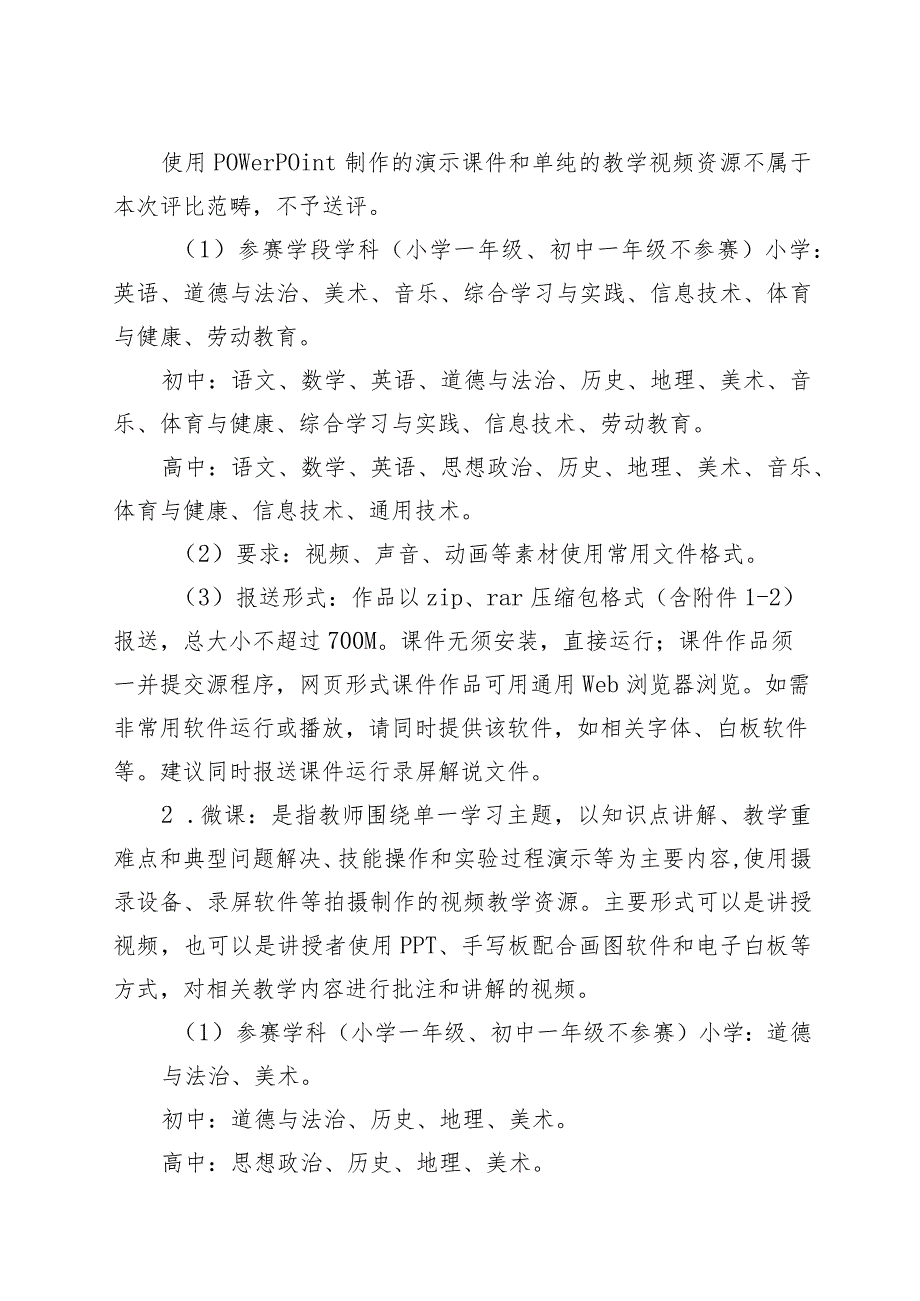 使用 POWerPOint 制作的演示课件和单纯的教学视频资源不属于
本次评比范畴，不予送评。
（1）参赛学段学科（小学一年级、初中一年级不参赛）小学：
英语、道德与法治、美术、音乐、综合学习与实践、信息技术、体育
与健康、劳动教育。
初中：语文、数学、英语、道德与法治、历史、地理、美术、音
乐、体育与健康、综合学习与实践、信息技术、劳动教育。
高中：语文、数学、英语、思想政治、历史、地理、美术、音乐、
体育与健康、信息技术、通用技术。
（2）要求：视频、声音、动画等素材使用常用文件格式。
（3）报送形式：作品以 zip、rar 压缩包格式（含附件 1-2）
报送，总大小不超过 700M。课件无须安装，直接运行；课件作品须
一并提交源程序，网页形式课件作品可用通用 Web 浏览器浏览。如需
非常用软件运行或播放，请同时提供该软件，如相关字体、白板软件
等。建议同时报送课件运行录屏解说文件。
2 .微课：是指教师围绕单一学习主题，以知识点讲解、教学重
难点和典型问题解决、技能操作和实验过程演示等为主要内容,使用摄
录设备、录屏软件等拍摄制作的视频教学资源。主要形式可以是讲授
视频，也可以是讲授者使用 PPT、手写板配合画图软件和电子白板等
方式，对相关教学内容进行批注和讲解的视频。
（1）参赛学科（小学一年级、初中一年级不参赛）小学：道德
与法治、美术。
初中：道德与法治、历史、地理、美术。
高中：思想政治、历史、地理、美术。